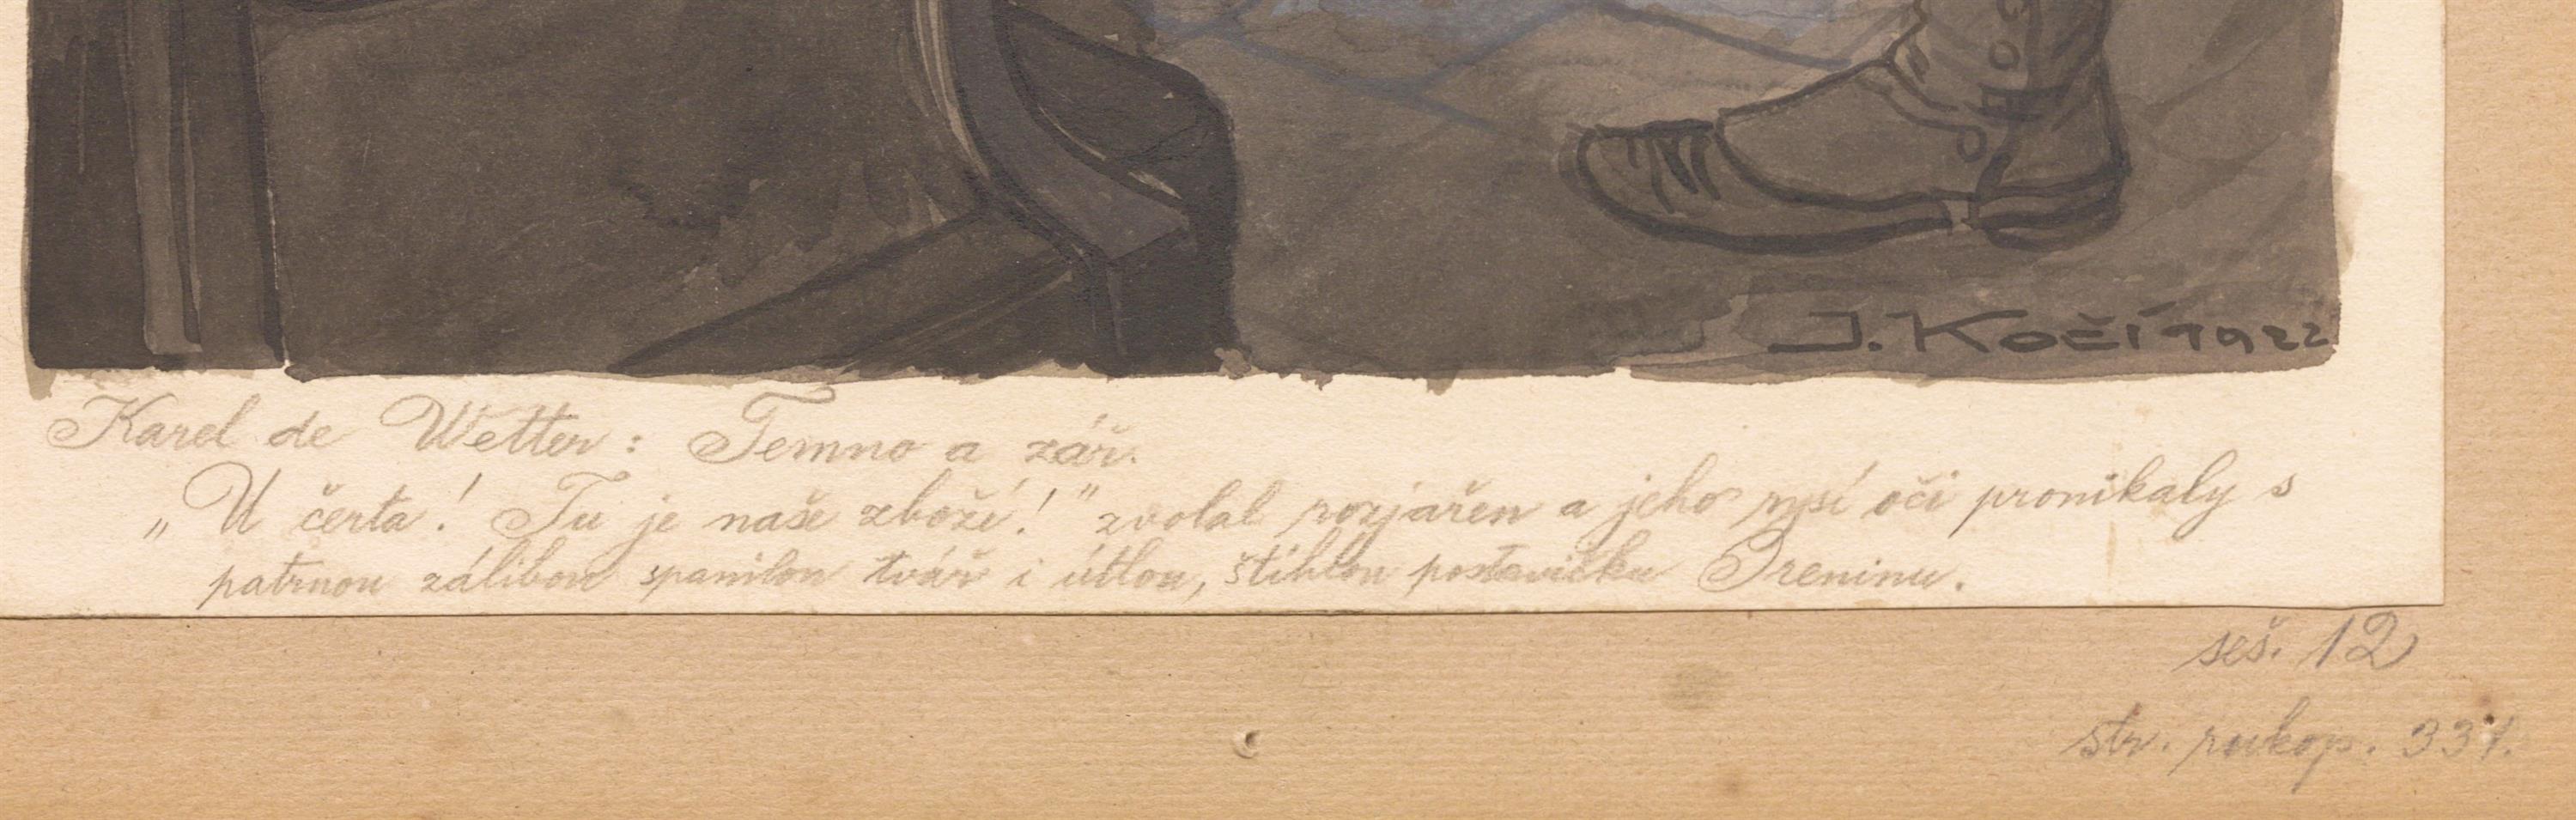 J. Kočí 1922
Karel de Wetter: Temno a zář.
„U čerta! Tu je naše zboží!" zvolal rozjařen a jeho rysí oči pronikaly s
patrnou zálibou spanilou tvář i útlou, štíhlou postavičku Ireninu.
seš. 12
str. rukop. 331.